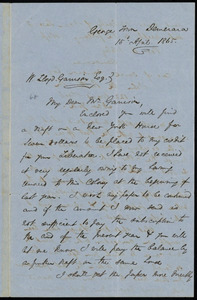 George Town Demerara
15th Apl. 1865.
W. Lloyd Garrison Esq.
My dear Mr. Garrison,
Enclosed you will find
a draft on a New York House for
seven dollars to be placed to my credit
for your Liberator. I have not received
it very regularly owing to my having
removed to this Colony at the beginning of
last year. I want my paper to be continued
and if the amount I now send is
not sufficient to pay the subscription to
the end of the present year & you will
let me know, I will pay the balance by
another draft on the same House
I shall get the paper more directly